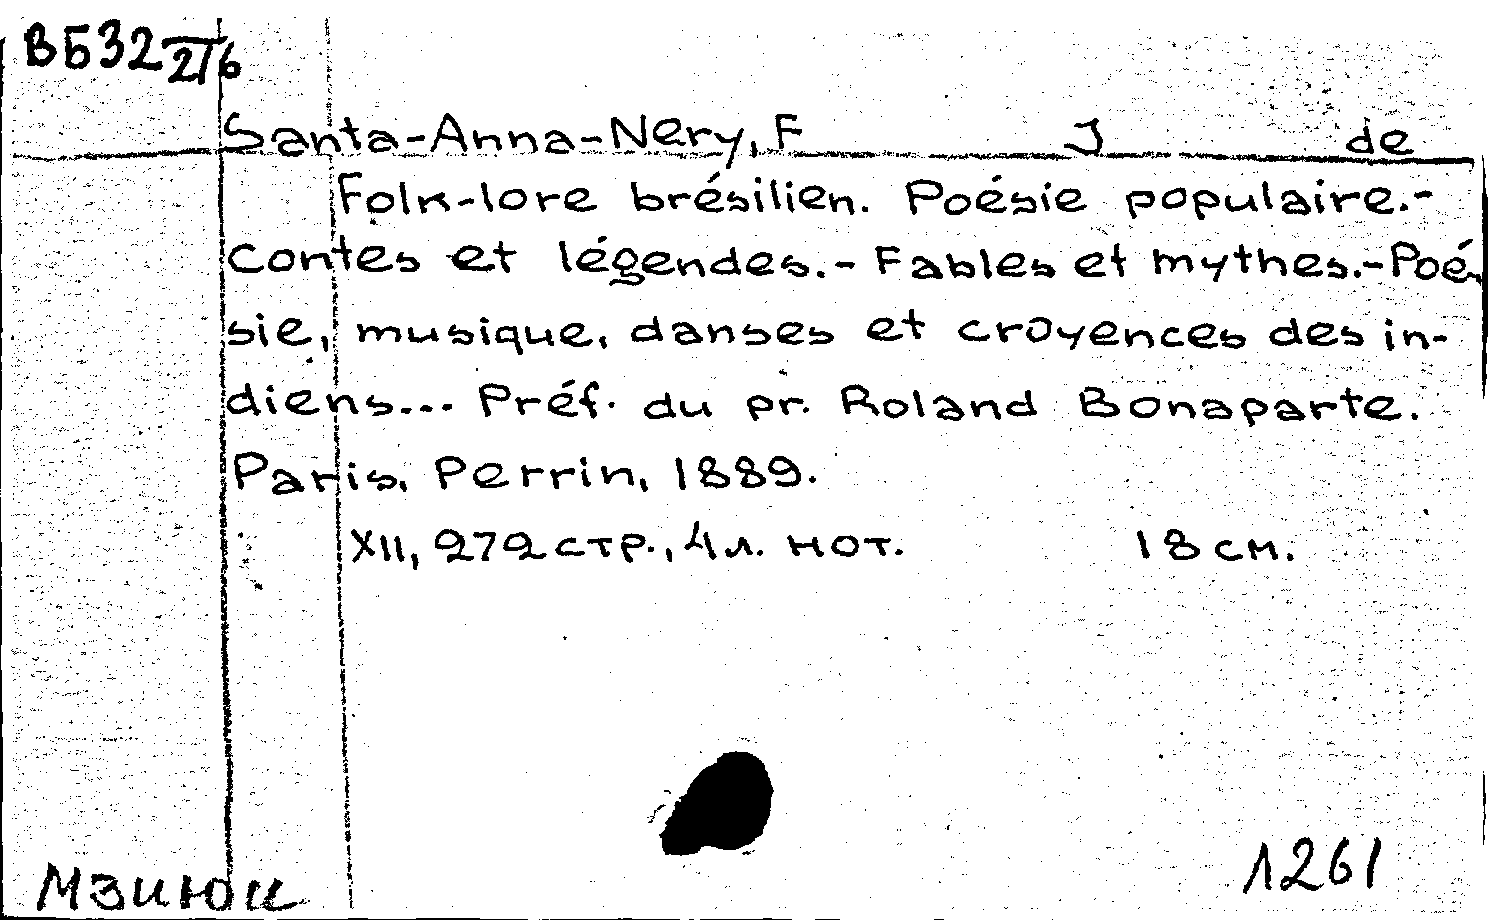 ВБ32 2/6
Santa-Anna-Nery, F J de
Folk-lore brésilien. Poésie populaire.-
Contes et légendes.- Fables et mythes.-Poé-
sie, musique, danses et croyences des in-
diens... Préf. du pr. Roland Bonaparte.
Paris, Perrin, 1889.
XII, 272 стр., 4 л. нот. 18 см.
1261